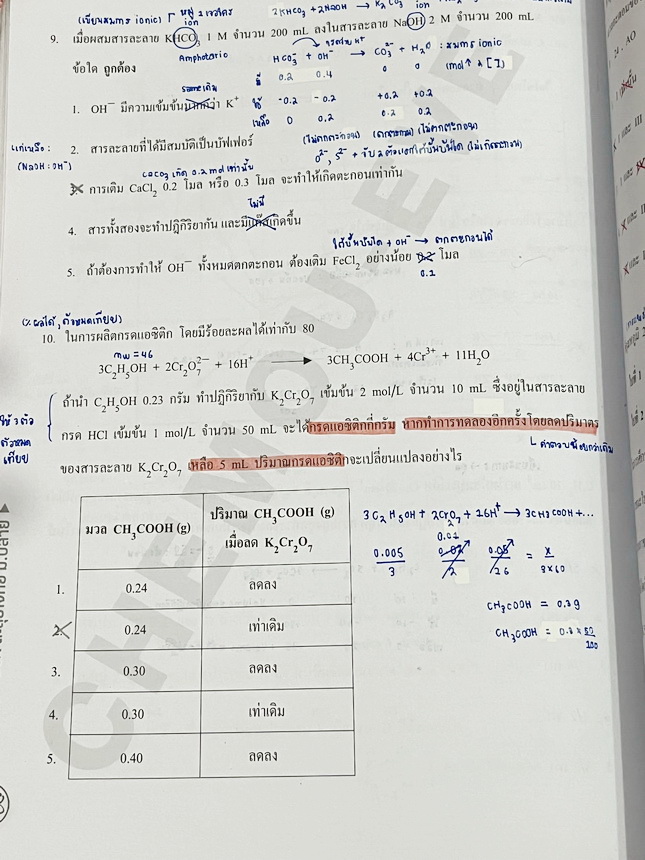 (เขียนสมการ ionic) หมู่ 2 เจอใคร 2KHCO3 + 2NaOH → K2CO3
9. เมื่อผสมสารละลาย KHCO3 1 M จำนวน 200 mL ลงในสารละลาย NaOH 2 M จำนวน 200 mL
Amphoteric HCO3⁻ + OH⁻ → CO3²⁻ + H2O : สมการ ionic
ข้อใด ถูกต้อง
มี 0.2 0.4 0 0 (mol
1. OH⁻ มีความเข้มข้นมากกว่า K⁺
ใช้ -0.2 -0.2 +0.2 +0.2
เหลือ 0 0.2 0.2 0.2
2. สารละลายที่ได้มีสมบัติเป็นบัฟเฟอร์
(NaOH : OH⁻)
CaCO3 เกิด 0.2 mol เท่านั้น
3. การเติม CaCl2 0.2 โมล หรือ 0.3 โมล จะทำให้เกิดตะกอนเท่ากัน
ไม่มี
4. สารทั้งสองจะทำปฏิกิริยากัน และมีแก๊สเกิดขึ้น
+ OH⁻ → ตกตะกอนได้
5. ถ้าต้องการทำให้ OH⁻ ทั้งหมดตกตะกอน ต้องเติม FeCl2 อย่างน้อย 0.2 โมล
(% ผลได้, ตัวหมดเทียบ)
10. ในการผลิตกรดแอซิติก โดยมีร้อยละผลได้เท่ากับ 80
mw = 46
3C2H5OH + 2Cr2O7²⁻ + 16H⁺ → 3CH3COOH + 4Cr³⁺ + 11H2O
ถ้านำ C2H5OH 0.23 กรัม ทำปฏิกิริยากับ K2Cr2O7 เข้มข้น 2 mol/L จำนวน 10 mL ซึ่งอยู่ในสารละลาย
ให้ 3 ตัว
ตัวหมด
เทียบ
กรด HCl เข้มข้น 1 mol/L จำนวน 50 mL จะได้กรดแอซิติกกี่กรัม หากทำการทดลองอีกครั้งโดยลดปริมาตร
ของสารละลาย K2Cr2O7 เหลือ 5 mL ปริมาณกรดแอซิติกจะเปลี่ยนแปลงอย่างไร
มวล CH3COOH (g) ปริมาณ CH3COOH (g)
เมื่อลด K2Cr2O7
1. 0.24 ลดลง
2. 0.24 เท่าเดิม
3. 0.30 ลดลง
4. 0.30 เท่าเดิม
5. 0.40 ลดลง
3C2H5OH + 2Cr2O7 + 16H⁺ → 3CH3COOH + ...
0.01
0.005 0.02 0.05 = x
3 2 16 3×60
CH3COOH = 0.3 g
CH3COOH = 0.3 × 80
100
CHEMOU EYE